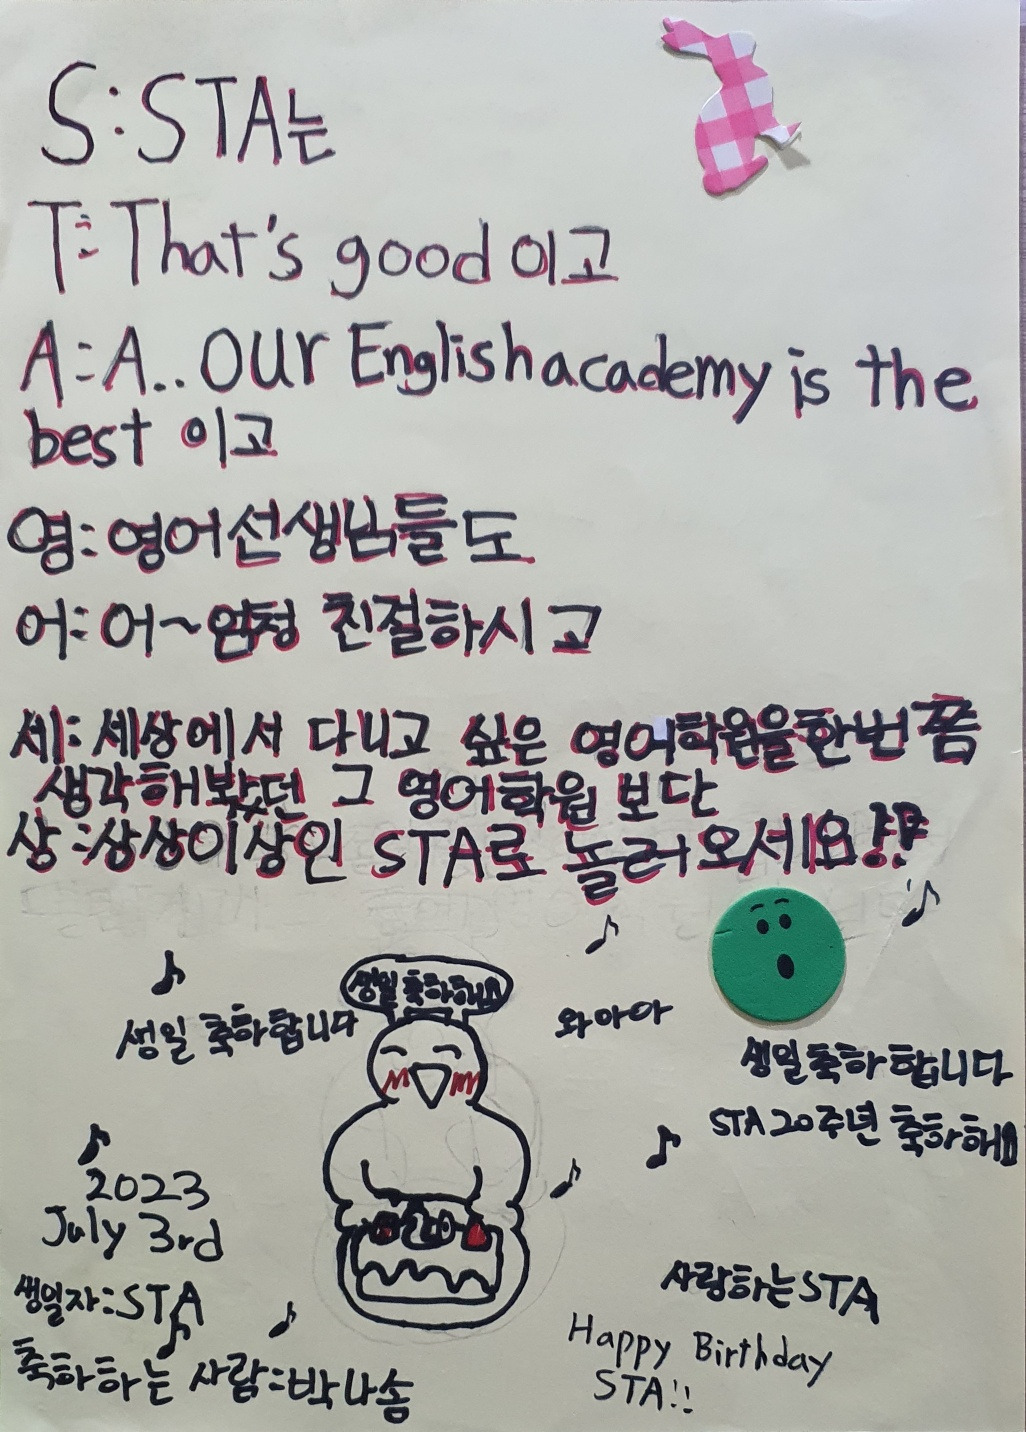 S:STA는
T:That's good 이고
A:A.. our English academy is the
best 이고
영:영어선생님들도
어:어~엄청 친절하시고
세:세상에서 다니고 싶은 영어학원을한번쯤
생각해봤던 그 영어학원 보단
상:상상이상인 STA로 놀러오세요!!
생일 축하해
생일 축하합니다
와아아
생일축하 합니다
STA 20주년 축하해
2023
July 3rd
생일자:STA
축하하는 사람:박나솜
사랑하는STA
Happy Birthday
STA!!